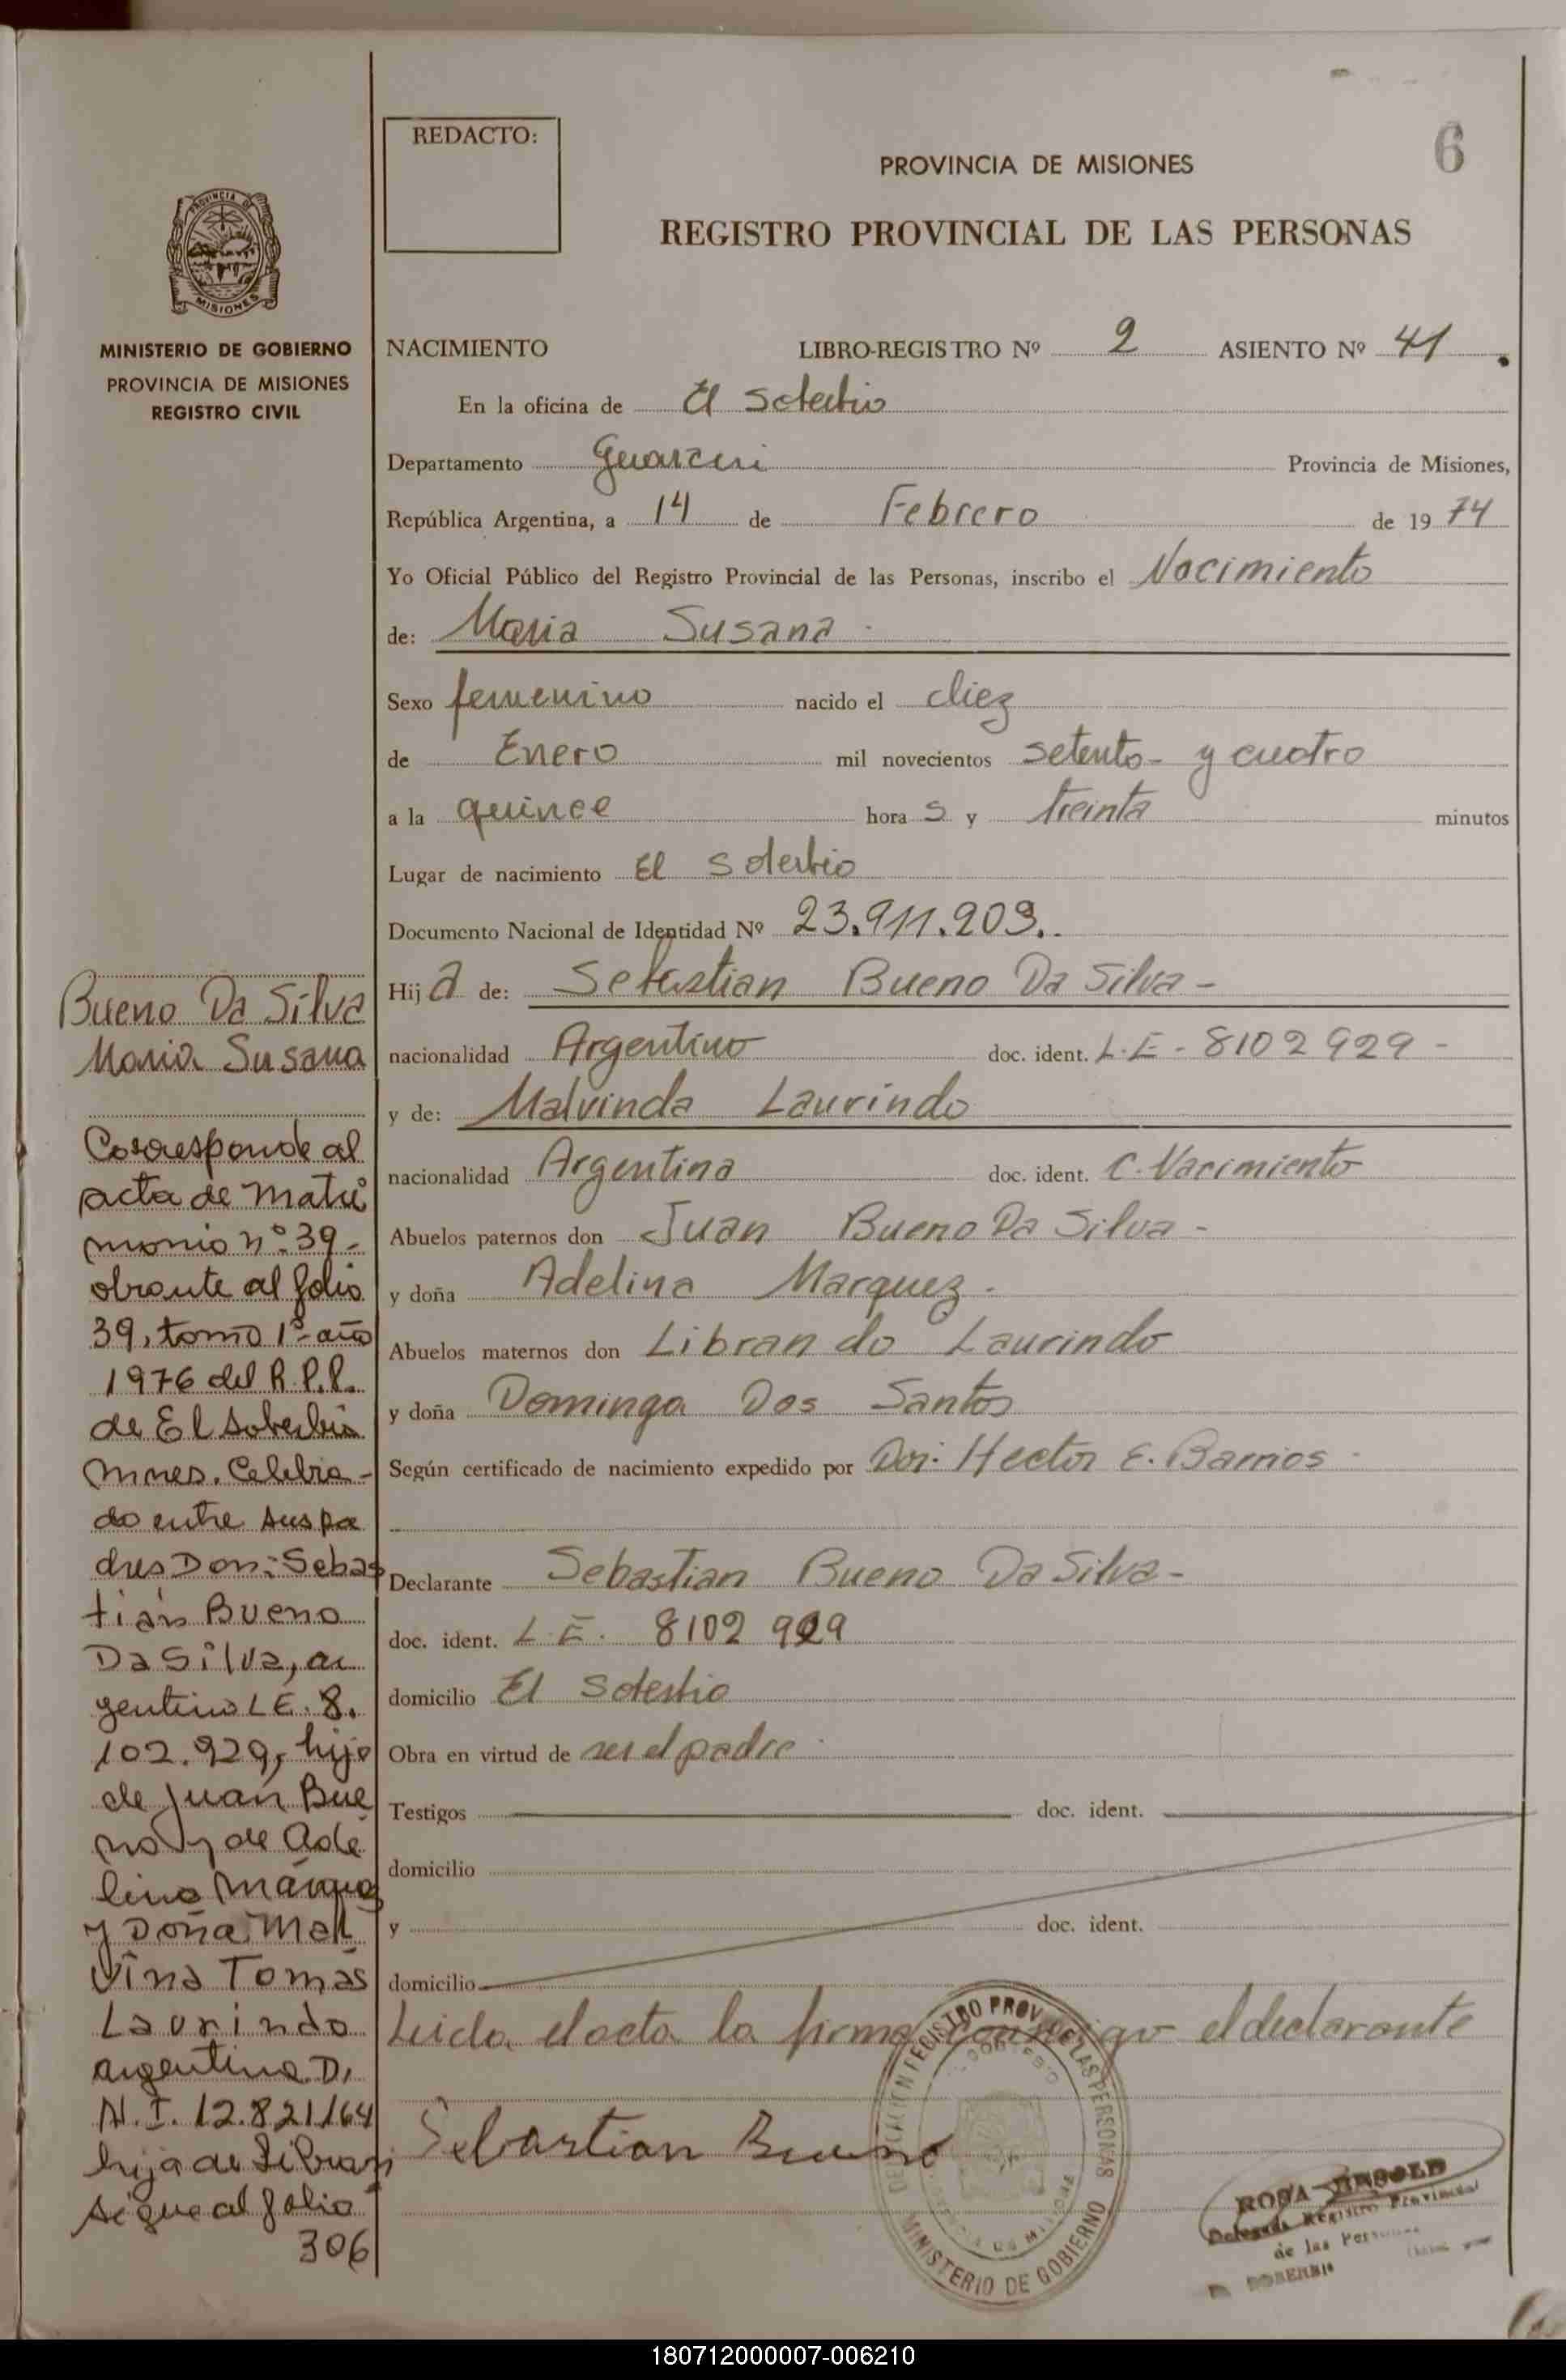 REDACTO:
6
PROVINCIA DE MISIONES
REGISTRO PROVINCIAL DE LAS PERSONAS
PROVINCIA DE
MISIONES
MINISTERIO DE GOBIERNO
PROVINCIA DE MISIONES
REGISTRO CIVIL
NACIMIENTO LIBRO-REGISTRO Nº 2 ASIENTO Nº 41
En la oficina de El Soberbio
Departamento Guarani Provincia de Misiones,
República Argentina, a 14 de Febrero de 1974
Yo Oficial Público del Registro Provincial de las Personas, inscribo el Nacimiento
de: Maria Susana
Sexo femenino nacido el diez
de Enero mil novecientos setenta y cuatro
a la quince hora s y treinta minutos
Lugar de nacimiento El Soberbio
Documento Nacional de Identidad Nº 23.911.209.
Hij a de: Sebastian Bueno Da Silva -
nacionalidad Argentino doc. ident. L.E - 8102929 -
y de: Malvinda Laurindo
nacionalidad Argentina doc. ident. C. Nacimiento
Abuelos paternos don Juan Bueno Da Silva -
y doña Adelina Marquez -
Abuelos maternos don Librando Laurindo
y doña Dominga Dos Santos
Según certificado de nacimiento expedido por Don: Hector E. Barrios
Declarante Sebastian Bueno Da Silva -
doc. ident. L.E. 8102 929
domicilio El Soberbio
Obra en virtud de ser el padre
Testigos doc. ident.
domicilio
y doc. ident.
domicilio
Leida el acta la firma conmigo el declarante
Sebastian Bueno
REGISTRO PROV. DE LAS PERSONAS
MINISTERIO DE GOBIERNO
ROSA
Delegada Registro Provincial
de las Personas
SOBERBIO
Bueno Da Silva
Maria Susana
Corresponde al
acta de matri
monio nº 39 -
obrante al folio
39, tomo 1º- año
1976 del R.P.P.
de El Soberbio
Mnes. Celebra-
do entre sus pa
dres Don: Sebas
tián Bueno
Da Silva, ar
gentino L.E. 8.
102.929, hijo
de Juan Bue
no y de Ade
lina Márquez
y Doña Mal
vina Tomas
Laurindo
argentina D.
N.I. 12.821.164
hija de Libran
sigue al folio
306
180712000007-006210